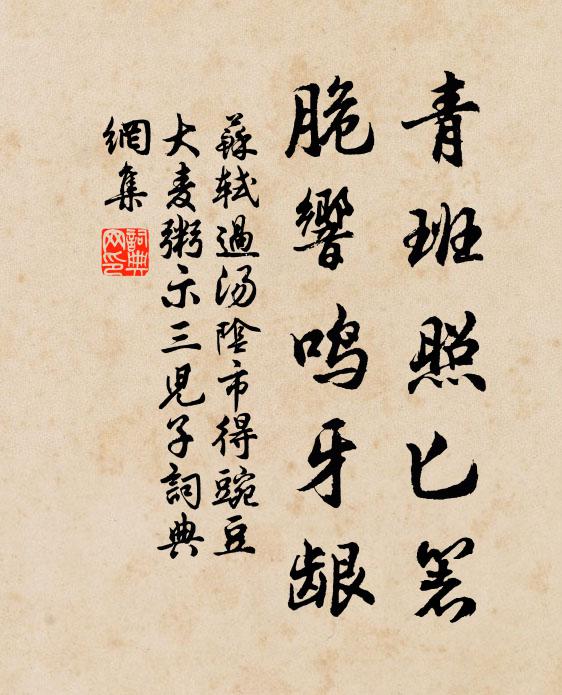 青班照匕箸
脆響鸣牙龈
蘇轼過湯陰市得豌豆
大麦粥示三児子詞典
網集
詞典
网印